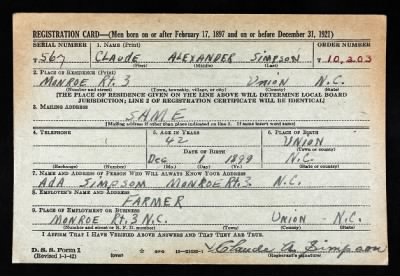 REGISTRATION CARD—(Men born on or after February 17, 1897 and on or before December 31, 1921)
SERIAL NUMBER 1. NAME (Print) ORDER NUMBER
T 567 CLAUDE ALEXANDER SIMPSON T 10,203
(First) (Middle) (Last)
2. PLACE OF RESIDENCE (Print)
MONROE Rt. 3 UNION N.C.
(Number and street) (Town, township, village, or city) (County) (State)
[THE PLACE OF RESIDENCE GIVEN ON THE LINE ABOVE WILL DETERMINE LOCAL BOARD
JURISDICTION; LINE 2 OF REGISTRATION CERTIFICATE WILL BE IDENTICAL]
3. MAILING ADDRESS
SAME
[Mailing address if other than place indicated on line 2. If same insert word same]
4. TELEPHONE 5. AGE IN YEARS 6. PLACE OF BIRTH
42 UNION
DATE OF BIRTH (Town or county)
Dec 1 1899 N.C.
(Exchange) (Number) (Mo.) (Day) (Yr.) (State or country)
7. NAME AND ADDRESS OF PERSON WHO WILL ALWAYS KNOW YOUR ADDRESS
ADA SIMPSOM MONROE Rt.3. N.C.
8. EMPLOYER'S NAME AND ADDRESS
FARMER
9. PLACE OF EMPLOYMENT OR BUSINESS
MONROE Rt.3 N.C. UNION - N.C.
(Number and street or R. F. D. number) (Town) (County) (State)
I AFFIRM THAT I HAVE VERIFIED ABOVE ANSWERS AND THAT THEY ARE TRUE.
D. S. S. Form 1
(Revised 1-1-42) (over) Claude A. Simpson
(Registrant's signature)